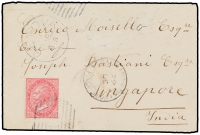 Enrico Moisello Esqre
Care of
Joseph Bastiani Esqre
Singapore
India